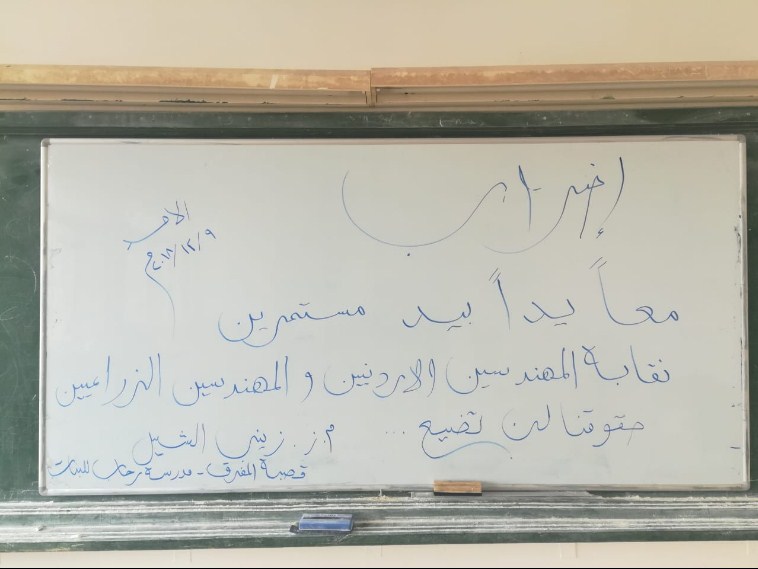 إضراب
الأحد
٢٠١٨/١٢/٩م
معاً يداً بيد مستمرين
نقابة المهندسين الاردنيين و المهندسين الزراعيين
حقوقنا لن تضيع ... م.ز. زينب الشبيل
قصبة المفرق - مدرسة رحاب للبنات